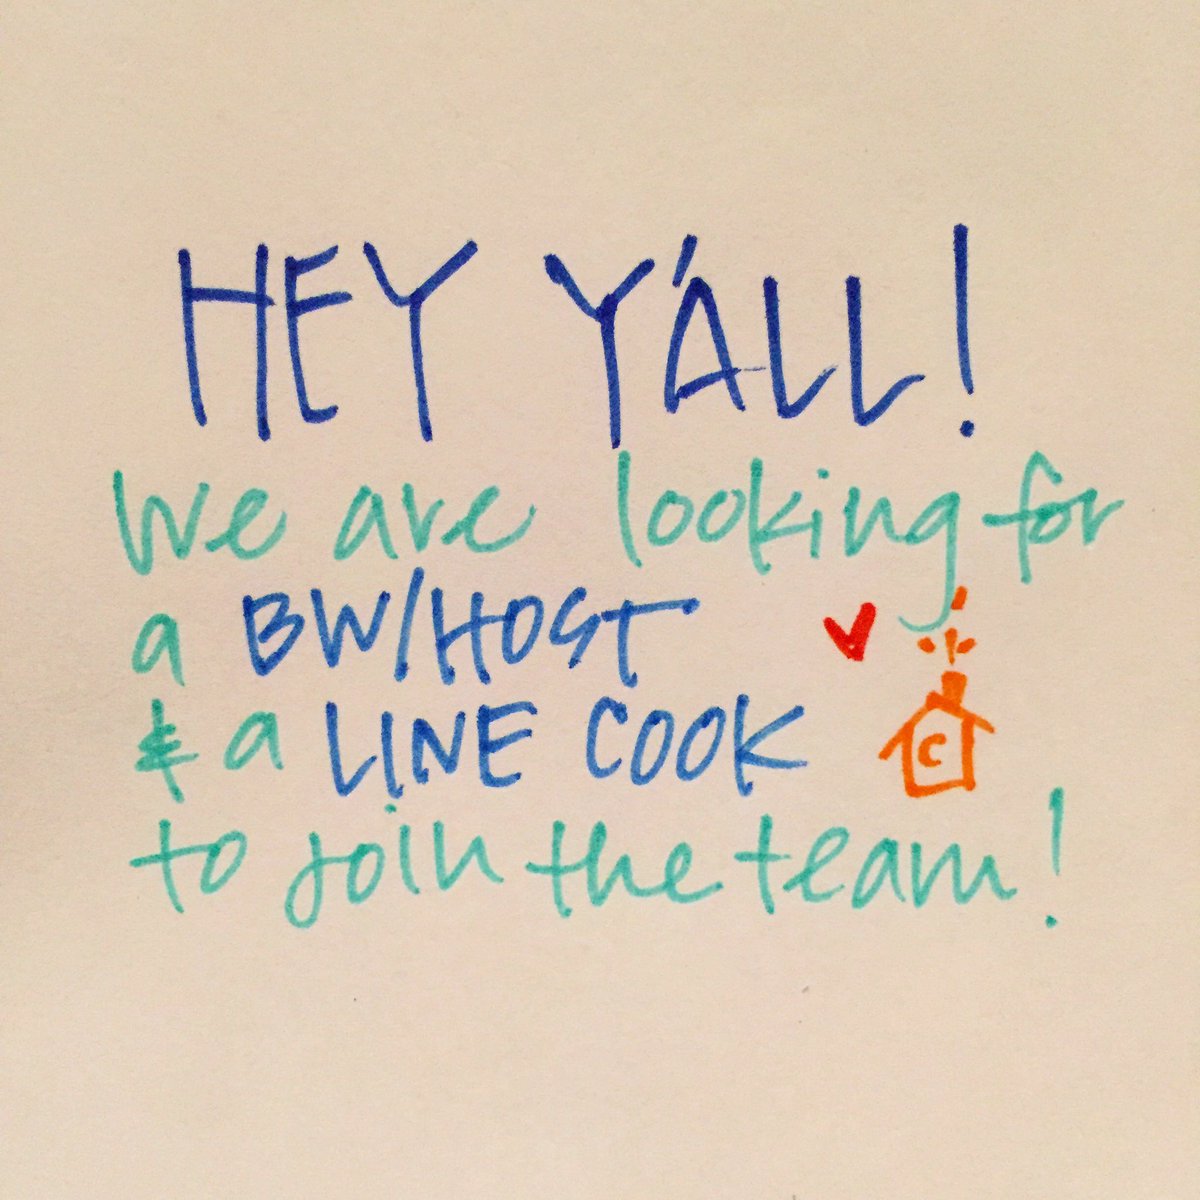 HEY Y'ALL!
we are looking for
a BW/HOST
& a LINE COOK
C
to join the team!